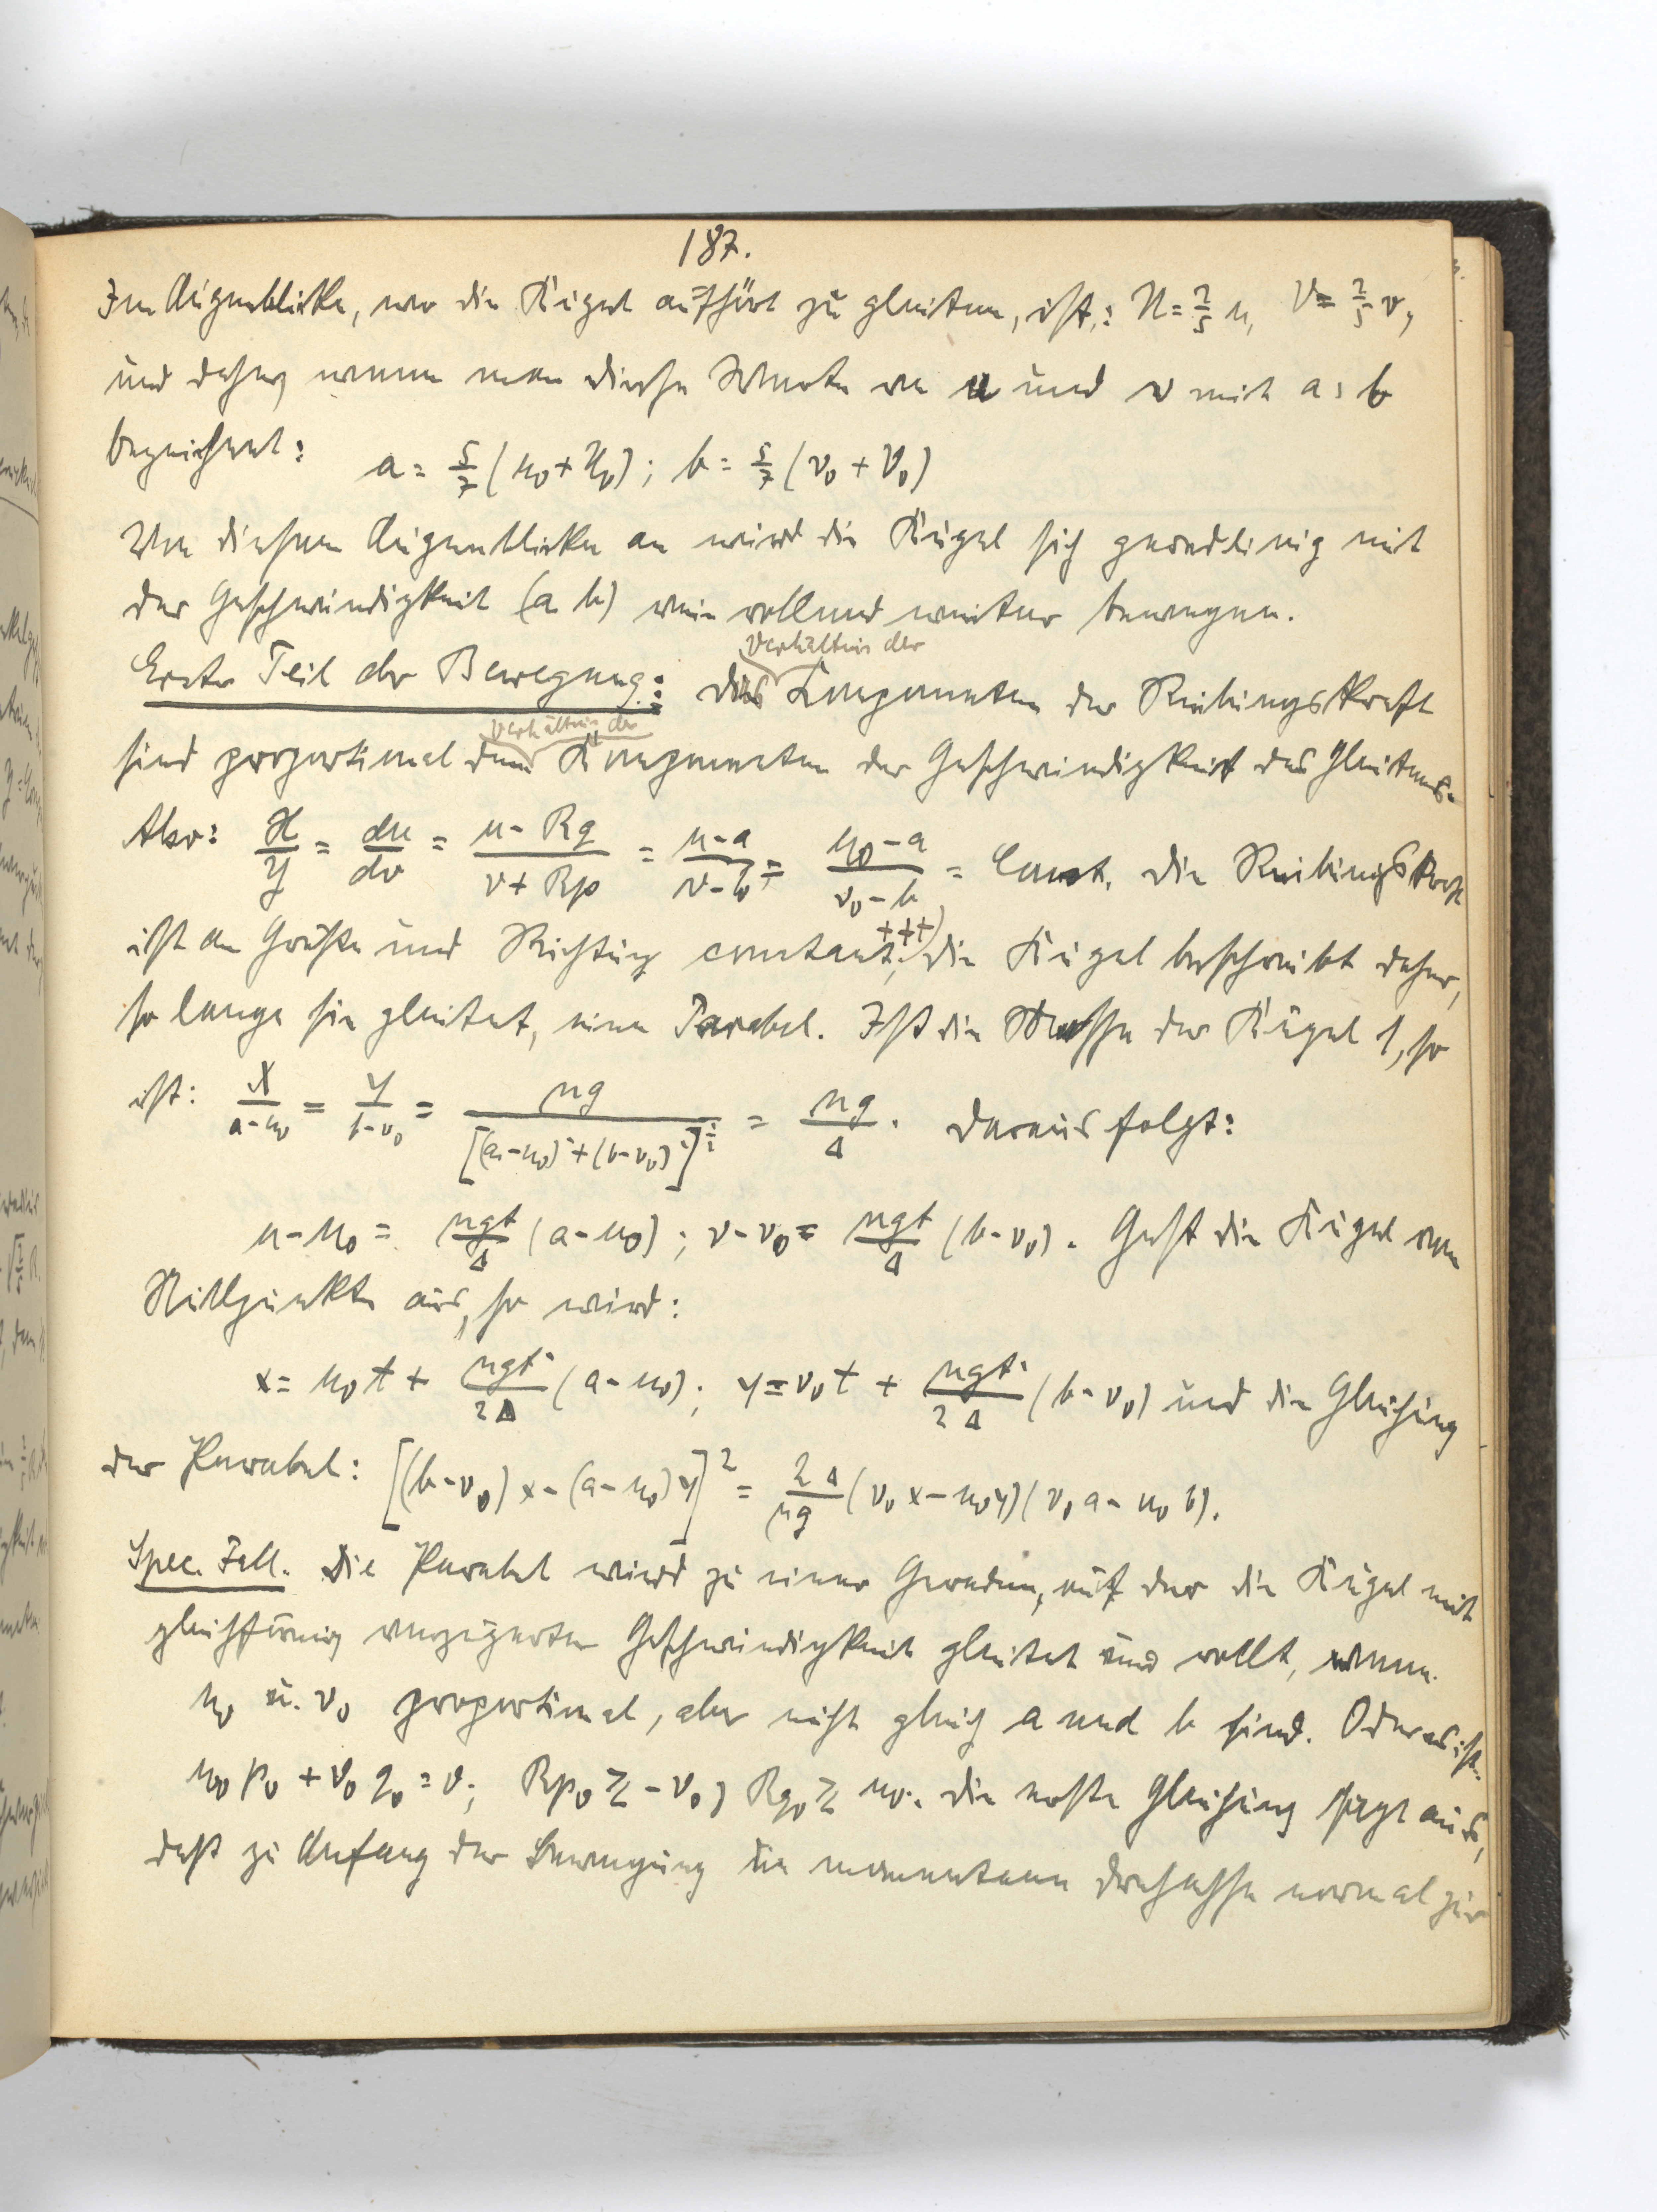 187.
Im Augenblicke, wo die Kugel aufhört zu gleiten, ist: U = 2/5 u, V = 2/5 v,
und daher wenn man diese Werte von u und v mit a, b
bezeichnet: a = 5/7 (u₀ + U₀); b = 5/7 (v₀ + V₀)
Von diesem Augenblicke an wird die Kugel sich geradlinig mit
der Geschwindigkeit (a b) rein rollend weiter bewegen.
Verhältnis der
Erster Teil der Bewegung: Das Componenten der Reibungskraft
Verhältnis der
sind proportional dem Componenten der Geschwindigkeit des Gleitens.
Also: X/Y = du/dv = (u - Rq)/(v + Rp) = (u - a)/(v - b) = (u₀ - a)/(v₀ - b) = Const. Die Reibungskraft
ist an Größe und Richtung constant; +++) die Kugel beschreibt daher,
so lange sie gleitet, eine Parabel. Ist die Masse der Kugel 1, so
ist: X/(a - u₀) = Y/(b - v₀) = μg/[(a - u₀)² + (b - v₀)²]^½ = μg/Δ. Daraus folgt:
u - u₀ = μgt/Δ (a - u₀); v - v₀ = μgt/Δ (b - v₀). Geht die Kugel vom
Nullpunkte aus, so wird:
x = u₀t + μgt²/2Δ (a - u₀); y = v₀t + μgt²/2Δ (b - v₀) und die Gleichung
der Parabel: [(b - v₀)x - (a - u₀)y]² = 2Δ/μg (v₀x - u₀y)(v₀a - u₀b).
Spec. Fall. Die Parabel wird zu einer Geraden, auf der die Kugel mit
gleichförmig verzögerter Geschwindigkeit gleitet und rollt, wenn
u₀ u. v₀ proportional, aber nicht gleich a und b sind. Oder es ist:
u₀p₀ + v₀q₀ = 0; Rp₀ ≷ -v₀; Rq₀ ≷ u₀. Die erste Gleichung sagt aus,
daß zu Anfang der Bewegung die momentane Drehachse normal zur